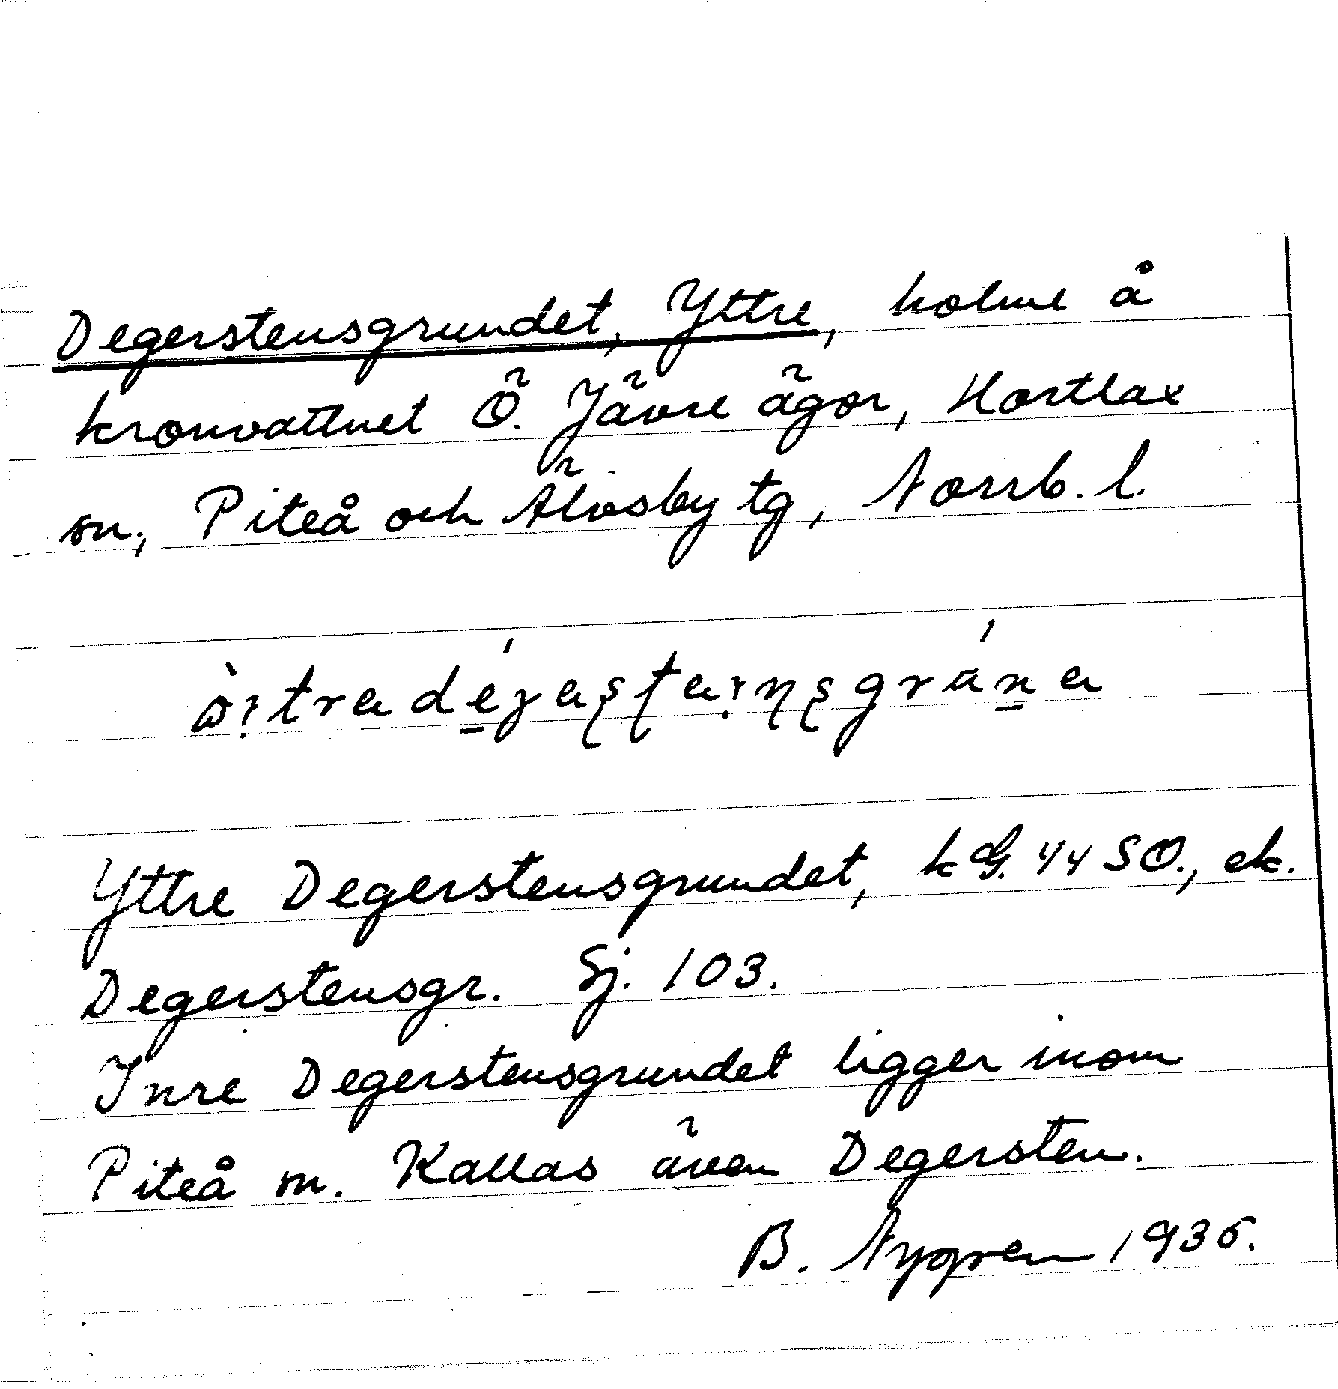 Degerstensgrundet, Yttre, holme å
kronvattnet Ö. Jävre ägor, Hortlax
sn, Piteå och Älvsby tg, Norrb. l.
Yttre Degerstensgrundet, kG. 44 SO., ek.
Degerstensgr. Sj. 103.
Inre Degerstensgrundet ligger inom
Piteå sn. Kallas även Degersten.
B. Nygren 1936.